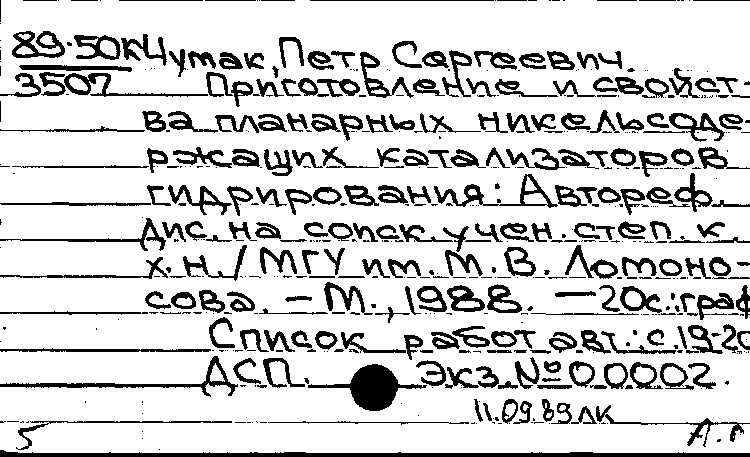 89-50к Чумак, Петр Сергеевич.
3507 Приготовление и свойст-
ва планарных никельсоде-
ржащих катализаторов
гидрирования: Автореф.
Дис. на соиск. учен. степ. к.
х.н. / МГУ им. М. В. Ломоно-
сова. – М., 1988. – 20с.: граф
Список работ авт.: с.19-20
ДСП. Экз. № 00002.
11.09.89 ЛК
5